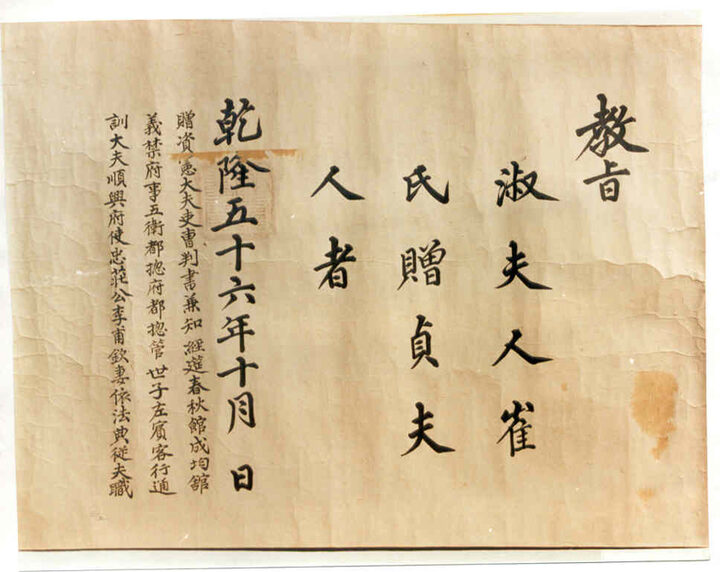 教旨
淑夫人崔
氏贈貞夫
人者
乾隆五十六年十月 日
贈資憲大夫吏曹判書兼知 經筵春秋館成均館
義禁府事五衛都摠府都摠管 世子左賓客行通
訓大夫順興府使忠莊公李甫欽妻依法典從夫職